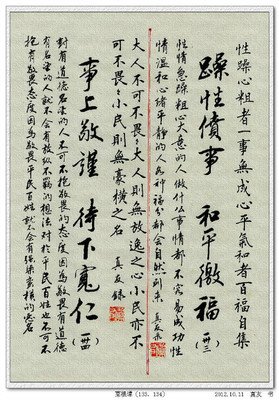 性躁心粗者一事無成心平氣和者百福自集
躁性僨事 和平徼福 (卅三)
性情急躁粗心大意的人做什么事情都不容易成功性
情溫和心緒平靜的人各种福分都會自然到来 真友錄
大人不可不畏々大人則無放逸之心小民亦不
可不畏々小民則無豪橫之名 真友錄
事上敬謹 待下寬仁 (卅四)
對有道德名望的人不可不抱敬畏的态度因為敬畏有道德
有名望的人就不會有放縱不羈的想法對於平民百姓也不可不
抱有敬畏态度因為敬畏平民百姓就不會有強梁蠻橫的惡名
菜根谭 (133、134) 2012.10.11 真友 书